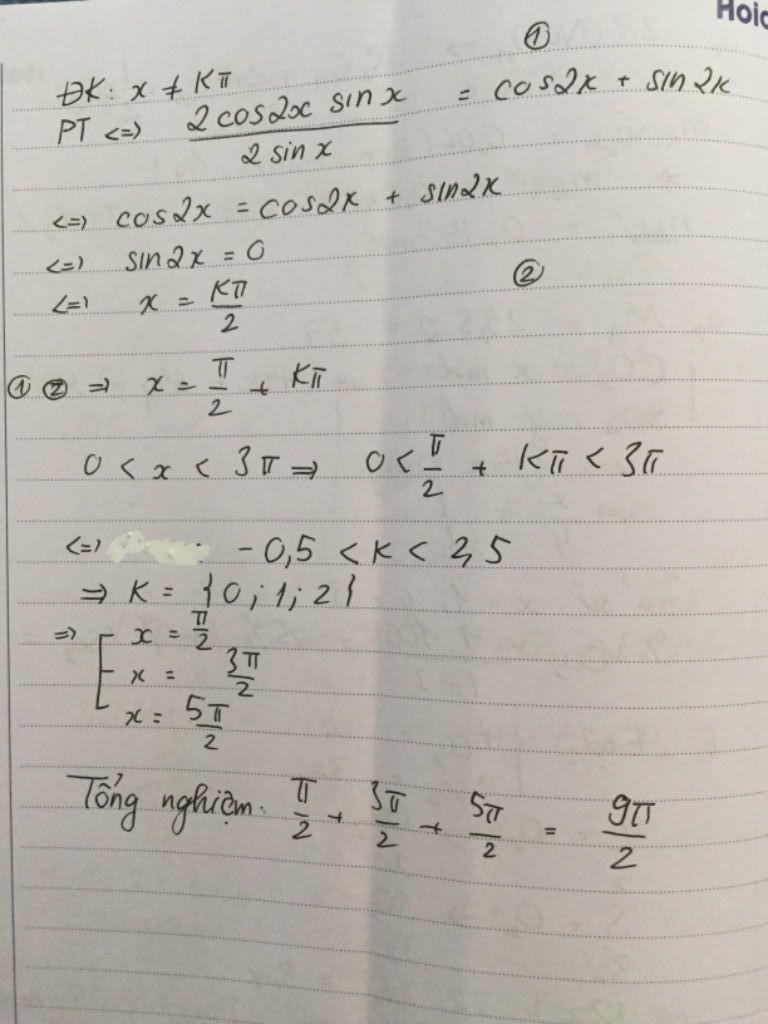 Hoic
①
ĐK: x ≠ Kπ
PT <=> 2 cos2x sin x / 2 sin x = cos2x + sin 2x
<=> cos2x = cos2x + sin2x
<=> sin2x = 0
<=> x = Kπ/2 ②
① ② => x = π/2 + Kπ
0 < x < 3π => 0 < π/2 + Kπ < 3π
<=> - 0,5 < K < 2,5
=> K = {0; 1; 2}
=> [ x = π/2
x = 3π/2
x = 5π/2
Tổng nghiệm: π/2 + 3π/2 + 5π/2 = 9π/2